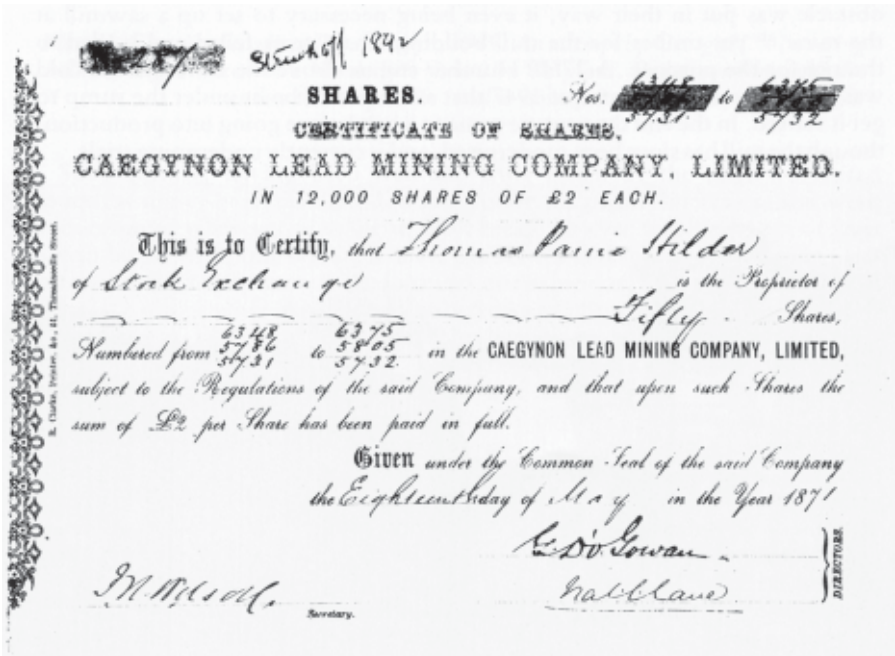 Struck off 1892
SHARES.
Nos. 6348 to 6375
5731 5732
CERTIFICATE OF SHARES.
CAEGYNON LEAD MINING COMPANY, LIMITED.
IN 12,000 SHARES OF £2 EACH.
This is to Certify, that Thomas Paine Hilder
of Stock Exchange is the Proprietor of
Fifty Shares,
6348 6375
5786 5805
Numbered from 5731 to 5732 in the CAEGYNON LEAD MINING COMPANY, LIMITED,
subject to the Regulations of the said Company, and that upon such Shares the
sum of £2 per Share has been paid in full.
Given under the Common Seal of the said Company
the Eighteenth day of May in the Year 1871
Gowan
DIRECTORS.
Secretary.
E. Clarke, Printer, &c., 21, Threadneedle Street.